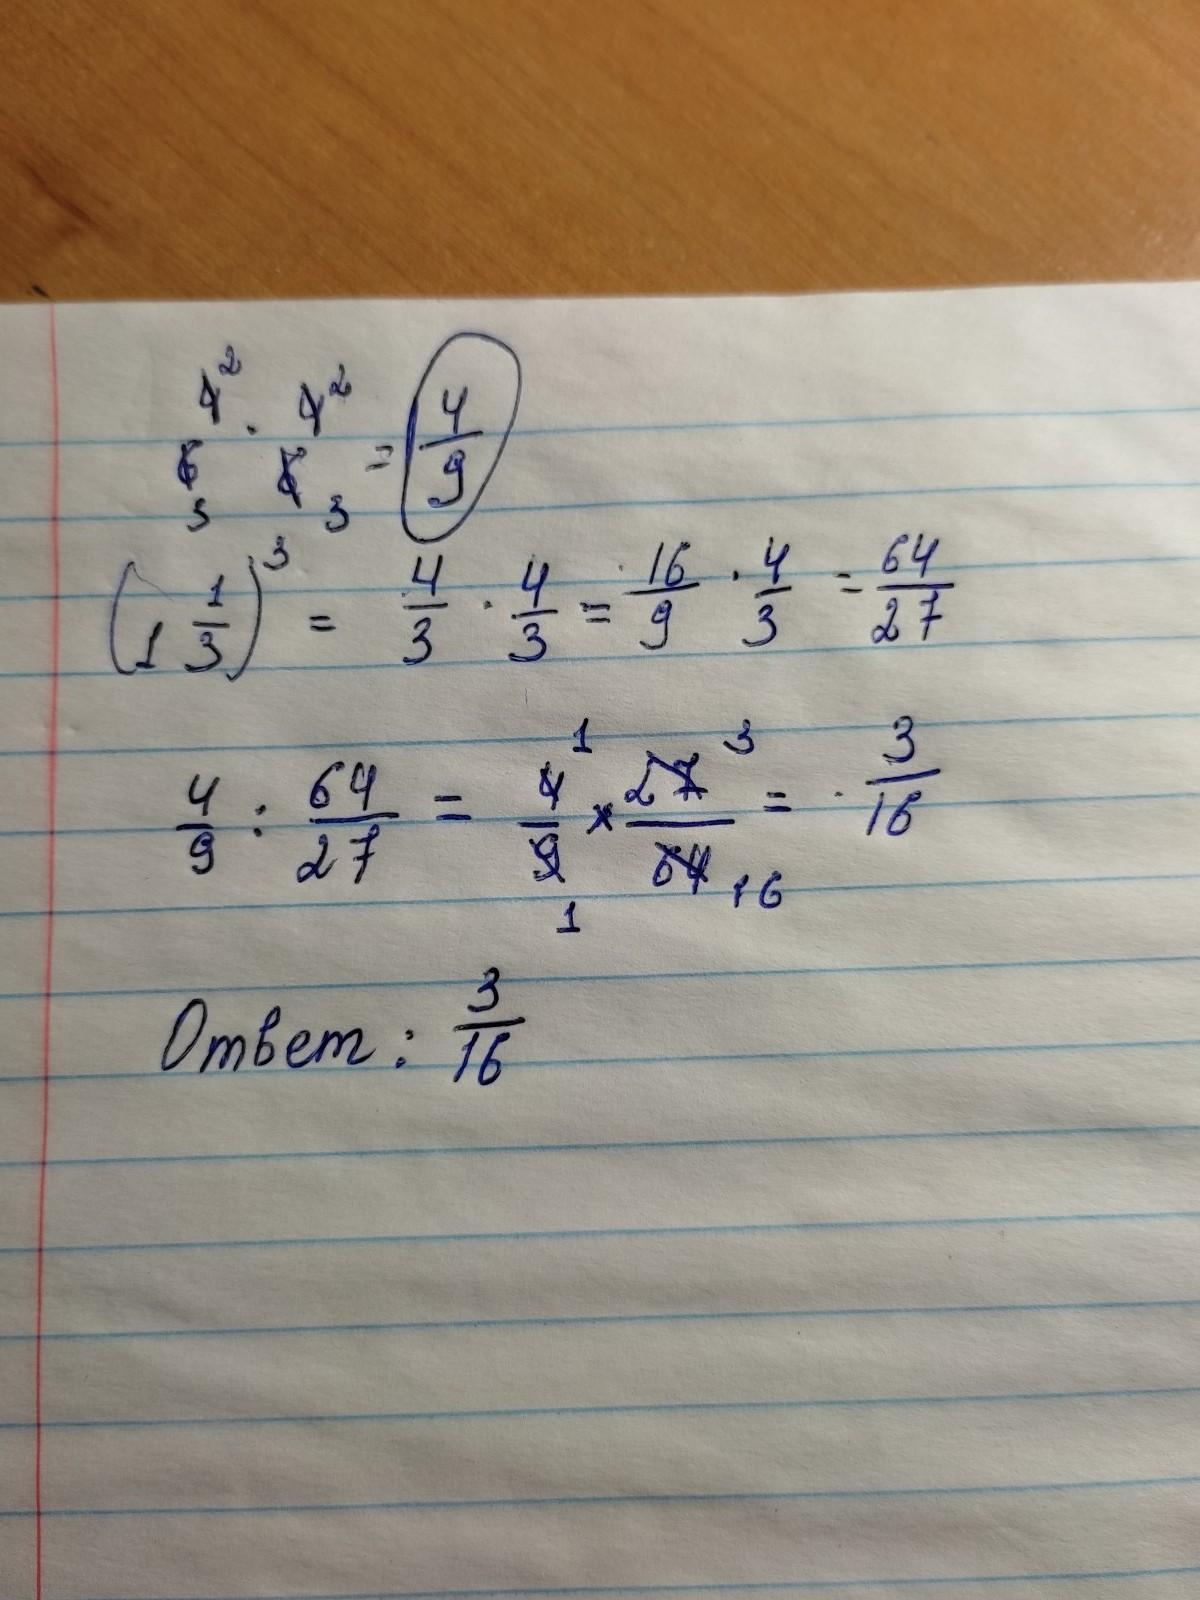 4² · 4² = 4/9
6 3 6 3
(1 1/3)³ = 4/3 · 4/3 = 16/9 · 4/3 = 64/27
4/9 : 64/27 = 4 1/9 1 × 27 3/64 16 = 3/16
Ответ: 3/16